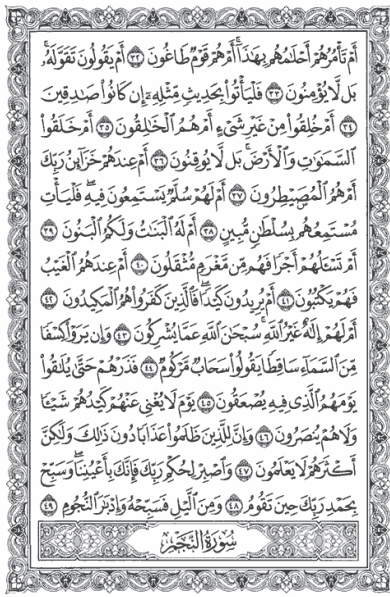 أَمْ تَأْمُرُهُمْ أَحْلَٰمُهُم بِهَٰذَآ أَمْ هُمْ قَوْمٌ طَاغُونَ ٣٢ أَمْ يَقُولُونَ تَقَوَّلَهُۥ
بَل لَّا يُؤْمِنُونَ ٣٣ فَلْيَأْتُوا۟ بِحَدِيثٍ مِّثْلِهِۦٓ إِن كَانُوا۟ صَٰدِقِينَ
٣٤ أَمْ خُلِقُوا۟ مِنْ غَيْرِ شَىْءٍ أَمْ هُمُ ٱلْخَٰلِقُونَ ٣٥ أَمْ خَلَقُوا۟
ٱلسَّمَٰوَٰتِ وَٱلْأَرْضَ ۚ بَل لَّا يُوقِنُونَ ٣٦ أَمْ عِندَهُمْ خَزَآئِنُ رَبِّكَ
أَمْ هُمُ ٱلْمُصَۣيْطِرُونَ ٣٧ أَمْ لَهُمْ سُلَّمٌ يَسْتَمِعُونَ فِيهِ ۖ فَلْيَأْتِ
مُسْتَمِعُهُم بِسُلْطَٰنٍ مُّبِينٍ ٣٨ أَمْ لَهُ ٱلْبَنَٰتُ وَلَكُمُ ٱلْبَنُونَ ٣٩
أَمْ تَسْـَٔلُهُمْ أَجْرًا فَهُم مِّن مَّغْرَمٍ مُّثْقَلُونَ ٤٠ أَمْ عِندَهُمُ ٱلْغَيْبُ
فَهُمْ يَكْتُبُونَ ٤١ أَمْ يُرِيدُونَ كَيْدًا ۖ فَٱلَّذِينَ كَفَرُوا۟ هُمُ ٱلْمَكِيدُونَ ٤٢
أَمْ لَهُمْ إِلَٰهٌ غَيْرُ ٱللَّهِ ۚ سُبْحَٰنَ ٱللَّهِ عَمَّا يُشْرِكُونَ ٤٣ وَإِن يَرَوْا۟ كِسْفًا
مِّنَ ٱلسَّمَآءِ سَاقِطًا يَقُولُوا۟ سَحَابٌ مَّرْكُومٌ ٤٤ فَذَرْهُمْ حَتَّىٰ يُلَٰقُوا۟
يَوْمَهُمُ ٱلَّذِى فِيهِ يُصْعَقُونَ ٤٥ يَوْمَ لَا يُغْنِى عَنْهُمْ كَيْدُهُمْ شَيْـًٔا
وَلَا هُمْ يُنصَرُونَ ٤٦ وَإِنَّ لِلَّذِينَ ظَلَمُوا۟ عَذَابًا دُونَ ذَٰلِكَ وَلَٰكِنَّ
أَكْثَرَهُمْ لَا يَعْلَمُونَ ٤٧ وَٱصْبِرْ لِحُكْمِ رَبِّكَ فَإِنَّكَ بِأَعْيُنِنَا ۖ وَسَبِّحْ
بِحَمْدِ رَبِّكَ حِينَ تَقُومُ ٤٨ وَمِنَ ٱلَّيْلِ فَسَبِّحْهُ وَإِدْبَٰرَ ٱلنُّجُومِ ٤٩
سُورَةُ النَّجْمِ